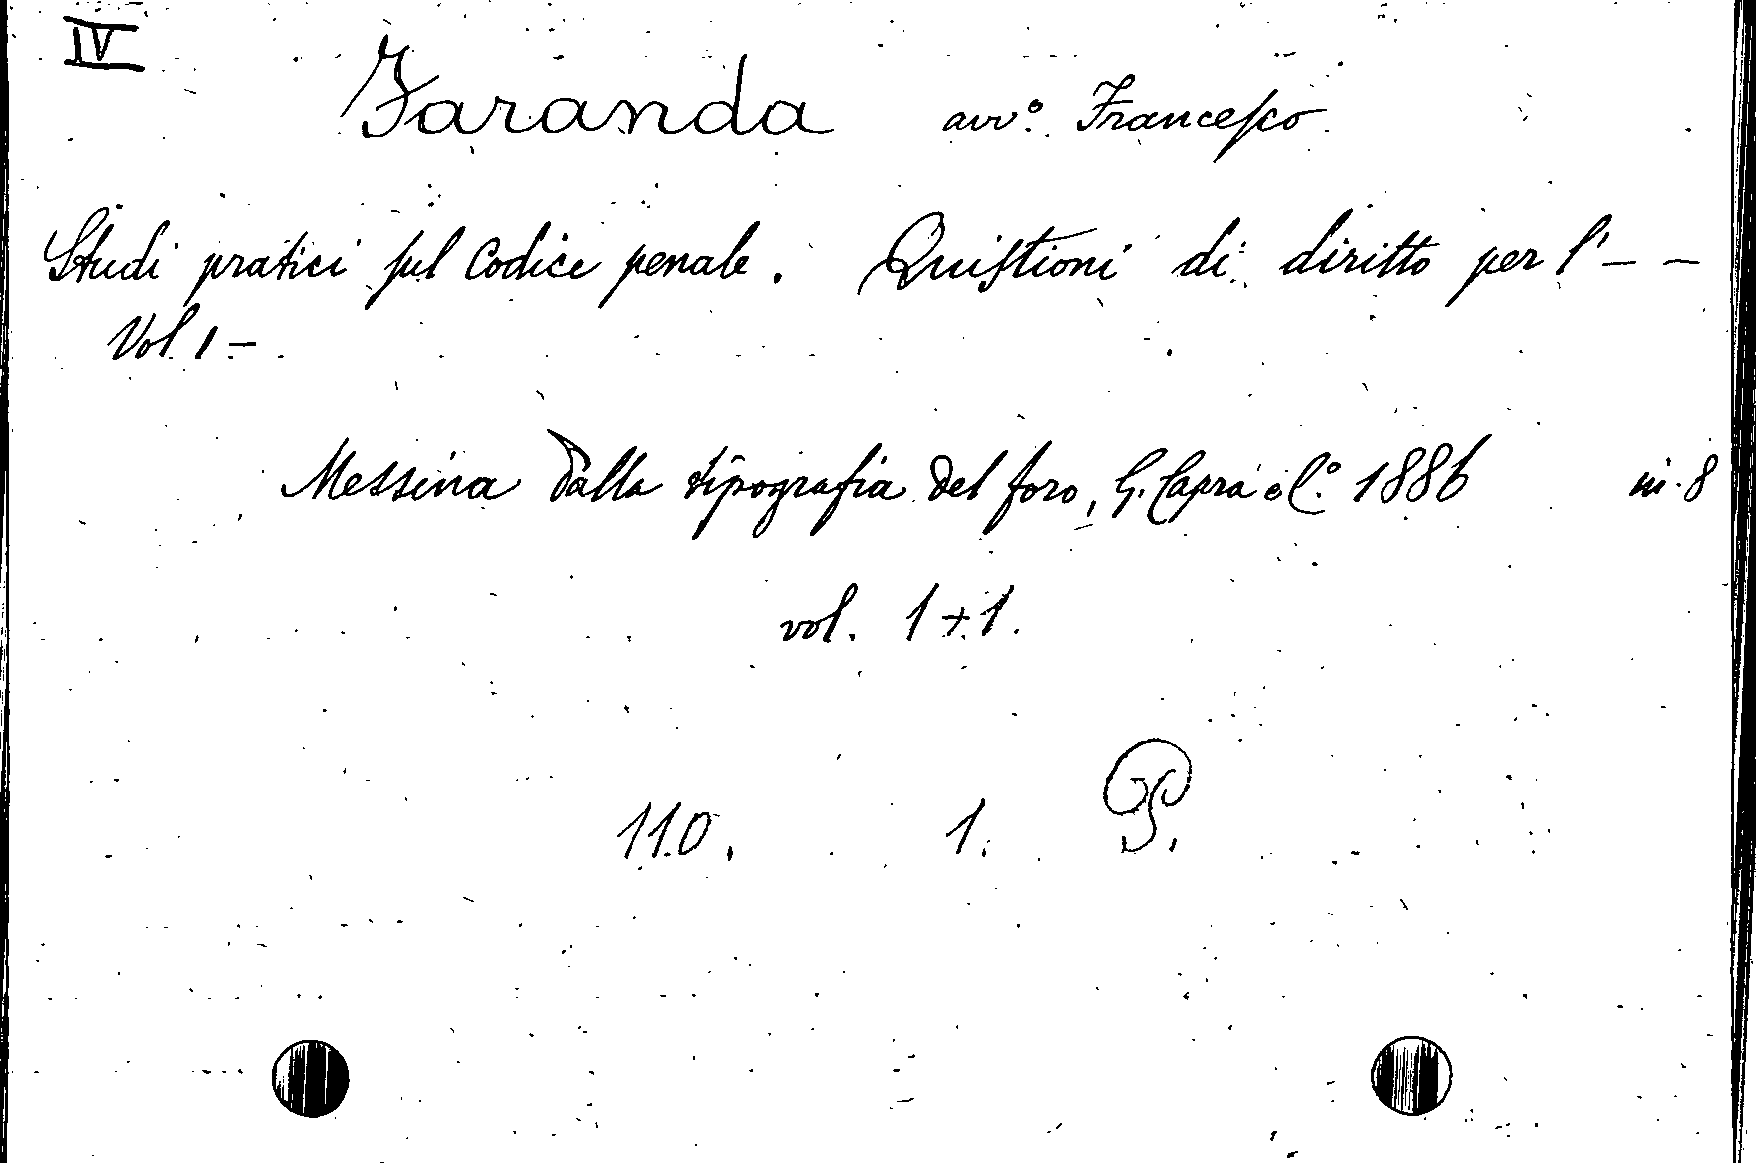 IV
Faranda avv.º Francesco
Studi pratici sul Codice penale. Quistioni di diritto per l' – –
Vol. 1 –
Messina dalla tipografia del foro, G. Capra e C.º 1886 in. 8
vol. 1 + 1.
110. 1. P.